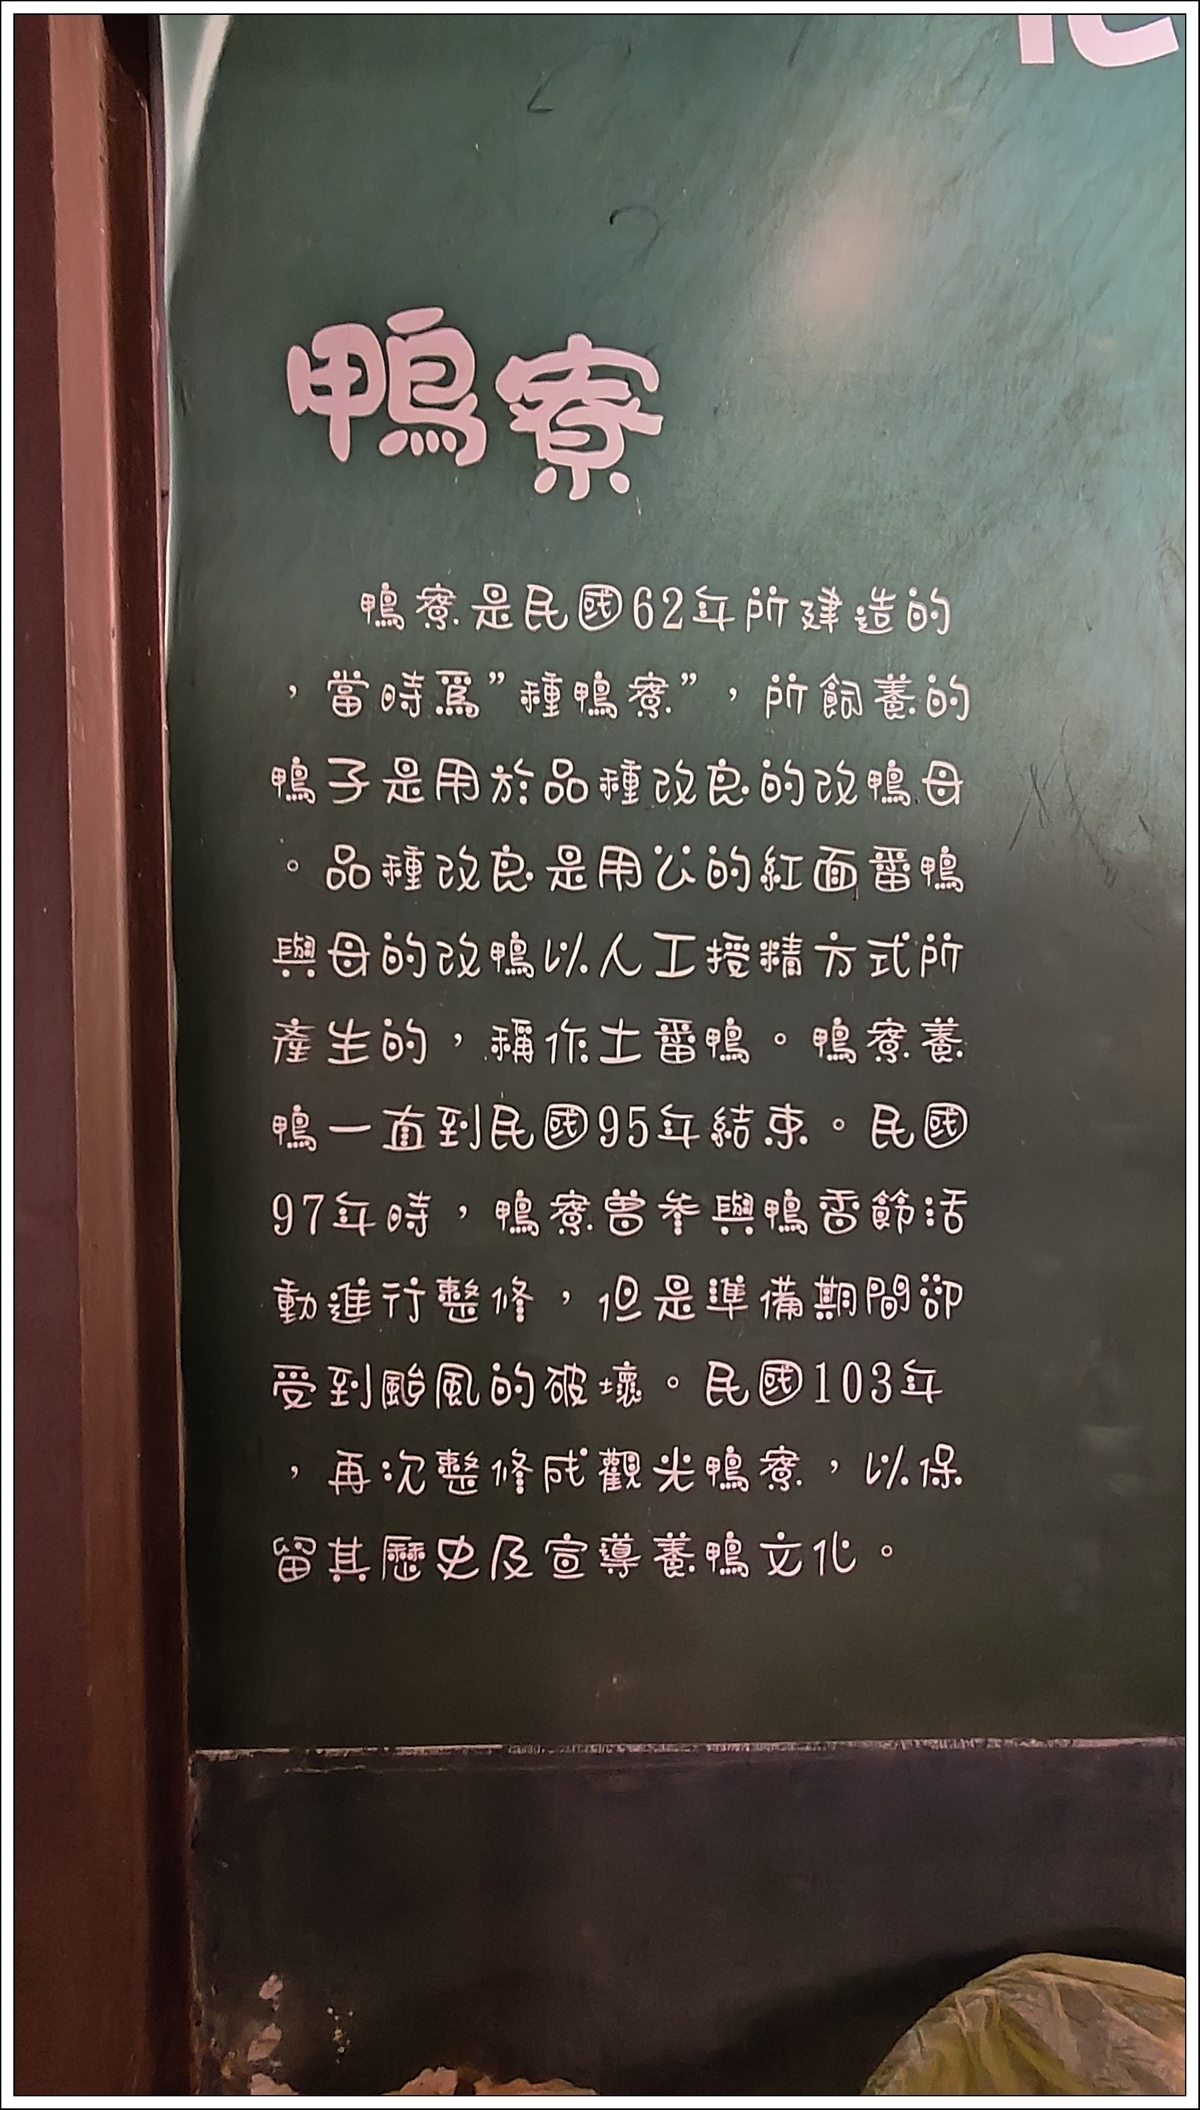 鴨寮
鴨寮是民國62年所建造的
，當時為”種鴨寮”，所飼養的
鴨子是用於品種改良的改鴨母
。品種改良是用公的紅面番鴨
與母的改鴨以人工授精方式所
產生的，稱作土番鴨。鴨寮養
鴨一直到民國95年結束。民國
97年時，鴨寮曾參與鴨香節活
動進行整修，但是準備期間卻
受到颱風的破壞。民國103年
，再次整修成觀光鴨寮，以保
留其歷史及宣導養鴨文化。